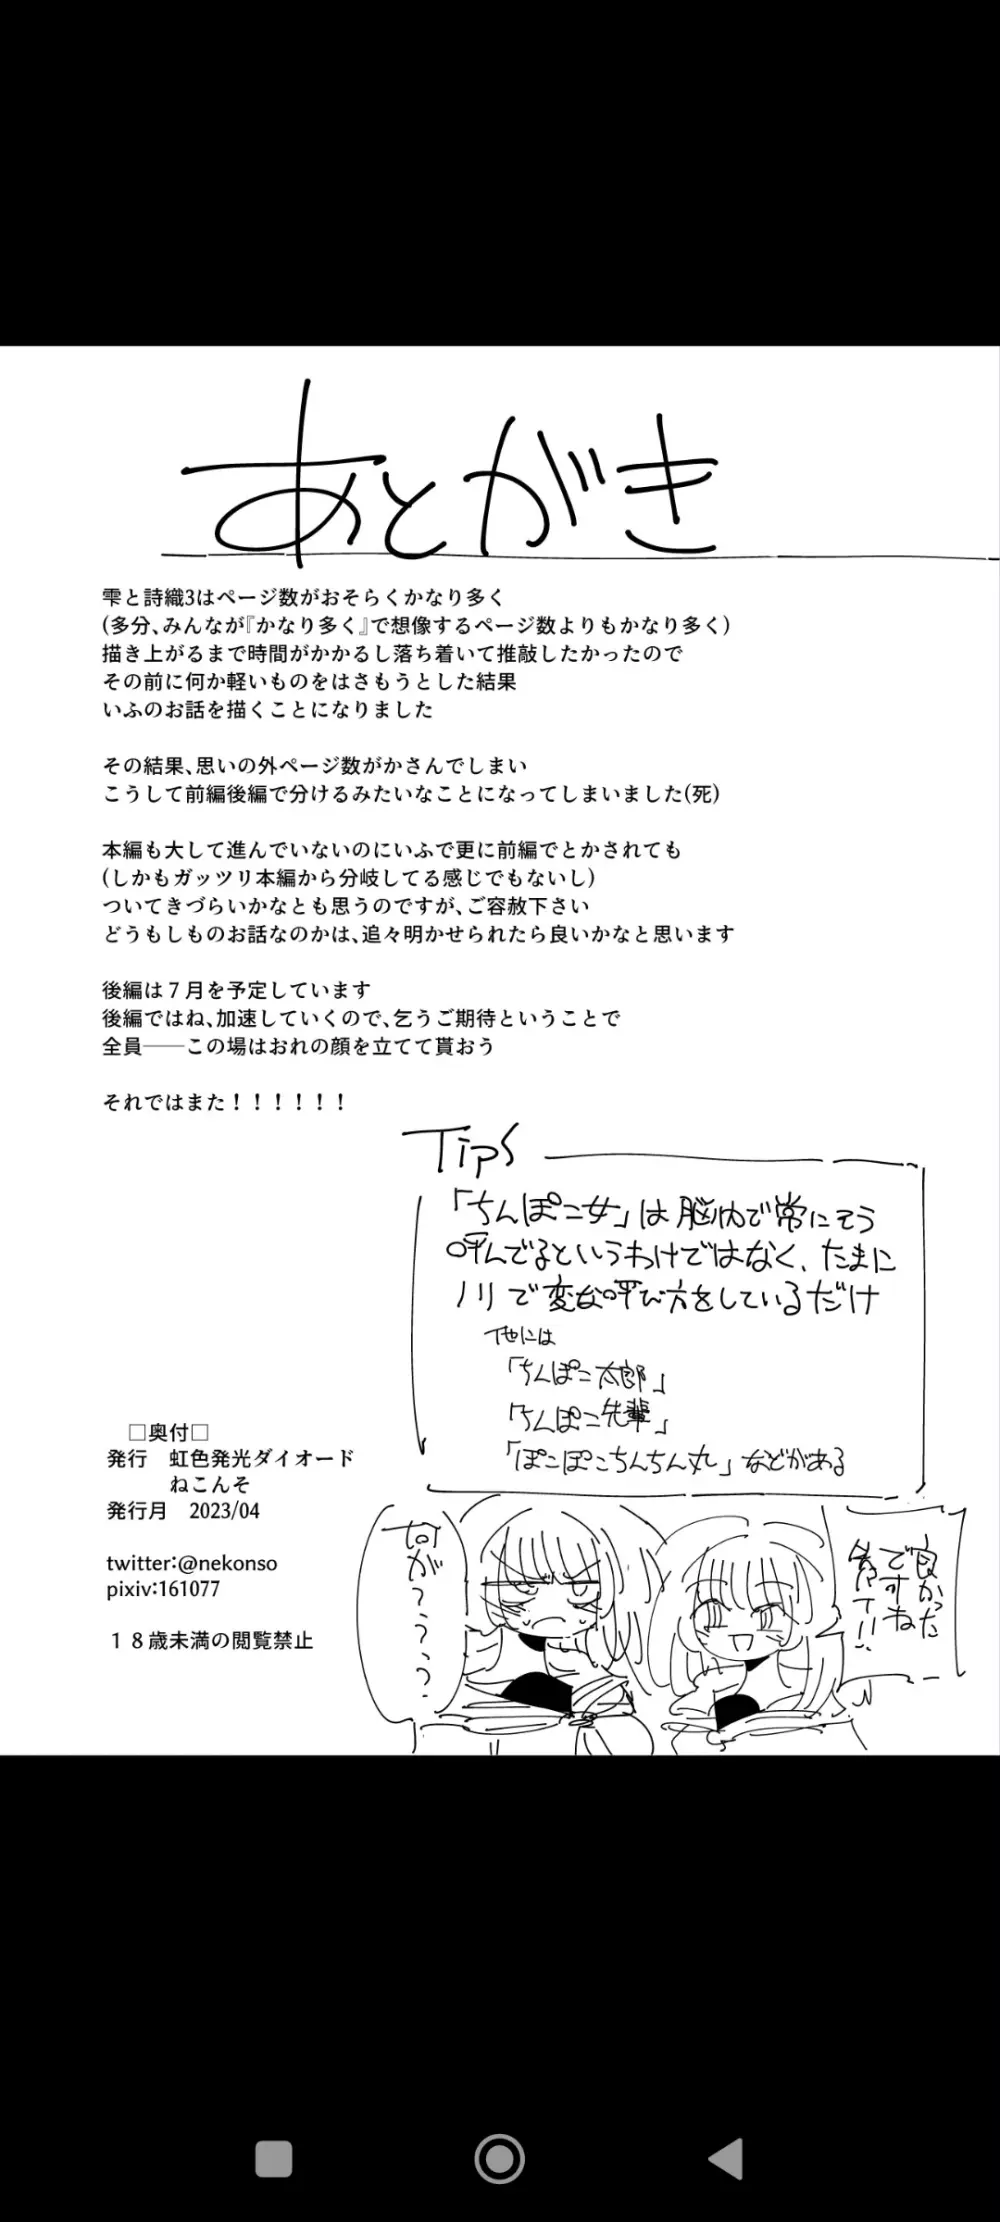 あとがき
雫と詩織3はページ数がおそらくかなり多く
(多分、みんなが『かなり多く』で想像するページ数よりもかなり多く)
描き上がるまで時間がかかるし落ち着いて推敲したかったので
その前に何か軽いものをはさもうとした結果
いふのお話を描くことになりました
その結果、思いの外ページ数がかさんでしまい
こうして前編後編で分けるみたいなことになってしまいました(死)
本編も大して進んでいないのにいふで更に前編でとかされても
(しかもガッツリ本編から分岐してる感じでもないし)
ついてきづらいかなとも思うのですが、ご容赦下さい
どうもしものお話なのかは、追々明かせられたら良いかなと思います
後編は7月を予定しています
後編ではね、加速していくので、乞うご期待ということで
全員──この場はおれの顔を立てて貰おう
それではまた！！！！！！
Tips
「ちんぽこ女」は脳内で常にそう
呼んでるというわけではなく、たまに
ノリで変な呼び方をしているだけ
他には
「ちんぽこ太郎」
「ちんぽこ先輩」
「ぽこぽこちんちん丸」などがある
□奥付□
発行　虹色発光ダイオード
ねこんそ
発行月　2023/04
twitter:@nekonso
pixiv:161077
１８歳未満の閲覧禁止
良かった
ですね
何が？？？？